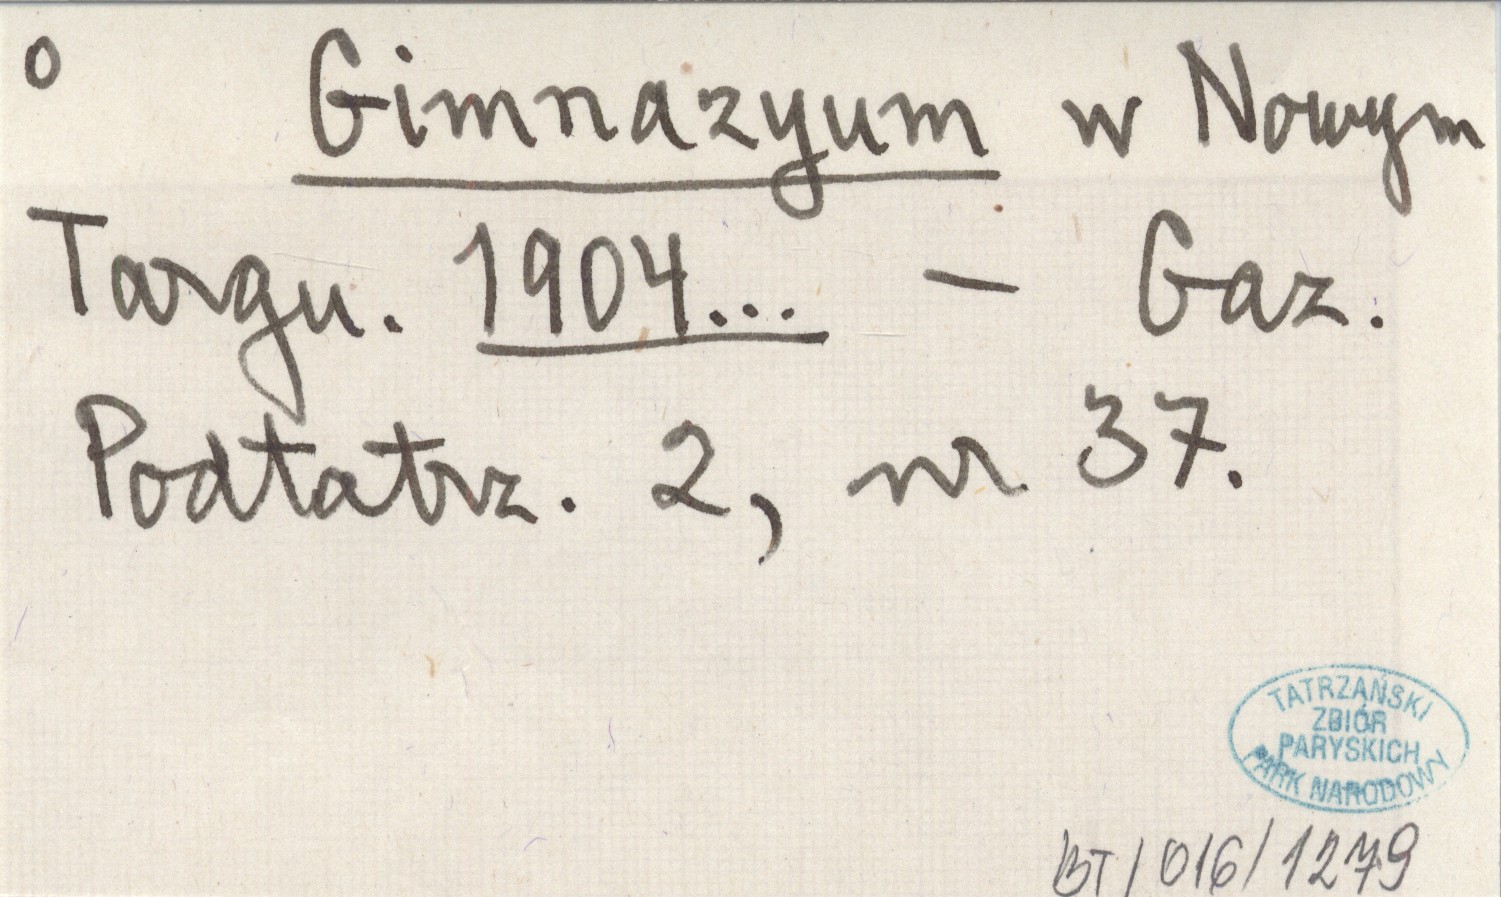 o Gimnazyum w Nowym
Targu. 1904... — Gaz.
Podtatrz. 2, nr 37.
TATRZAŃSKI
ZBIÓR
PARYSKICH
PARK NARODOWY
BT/016/1279